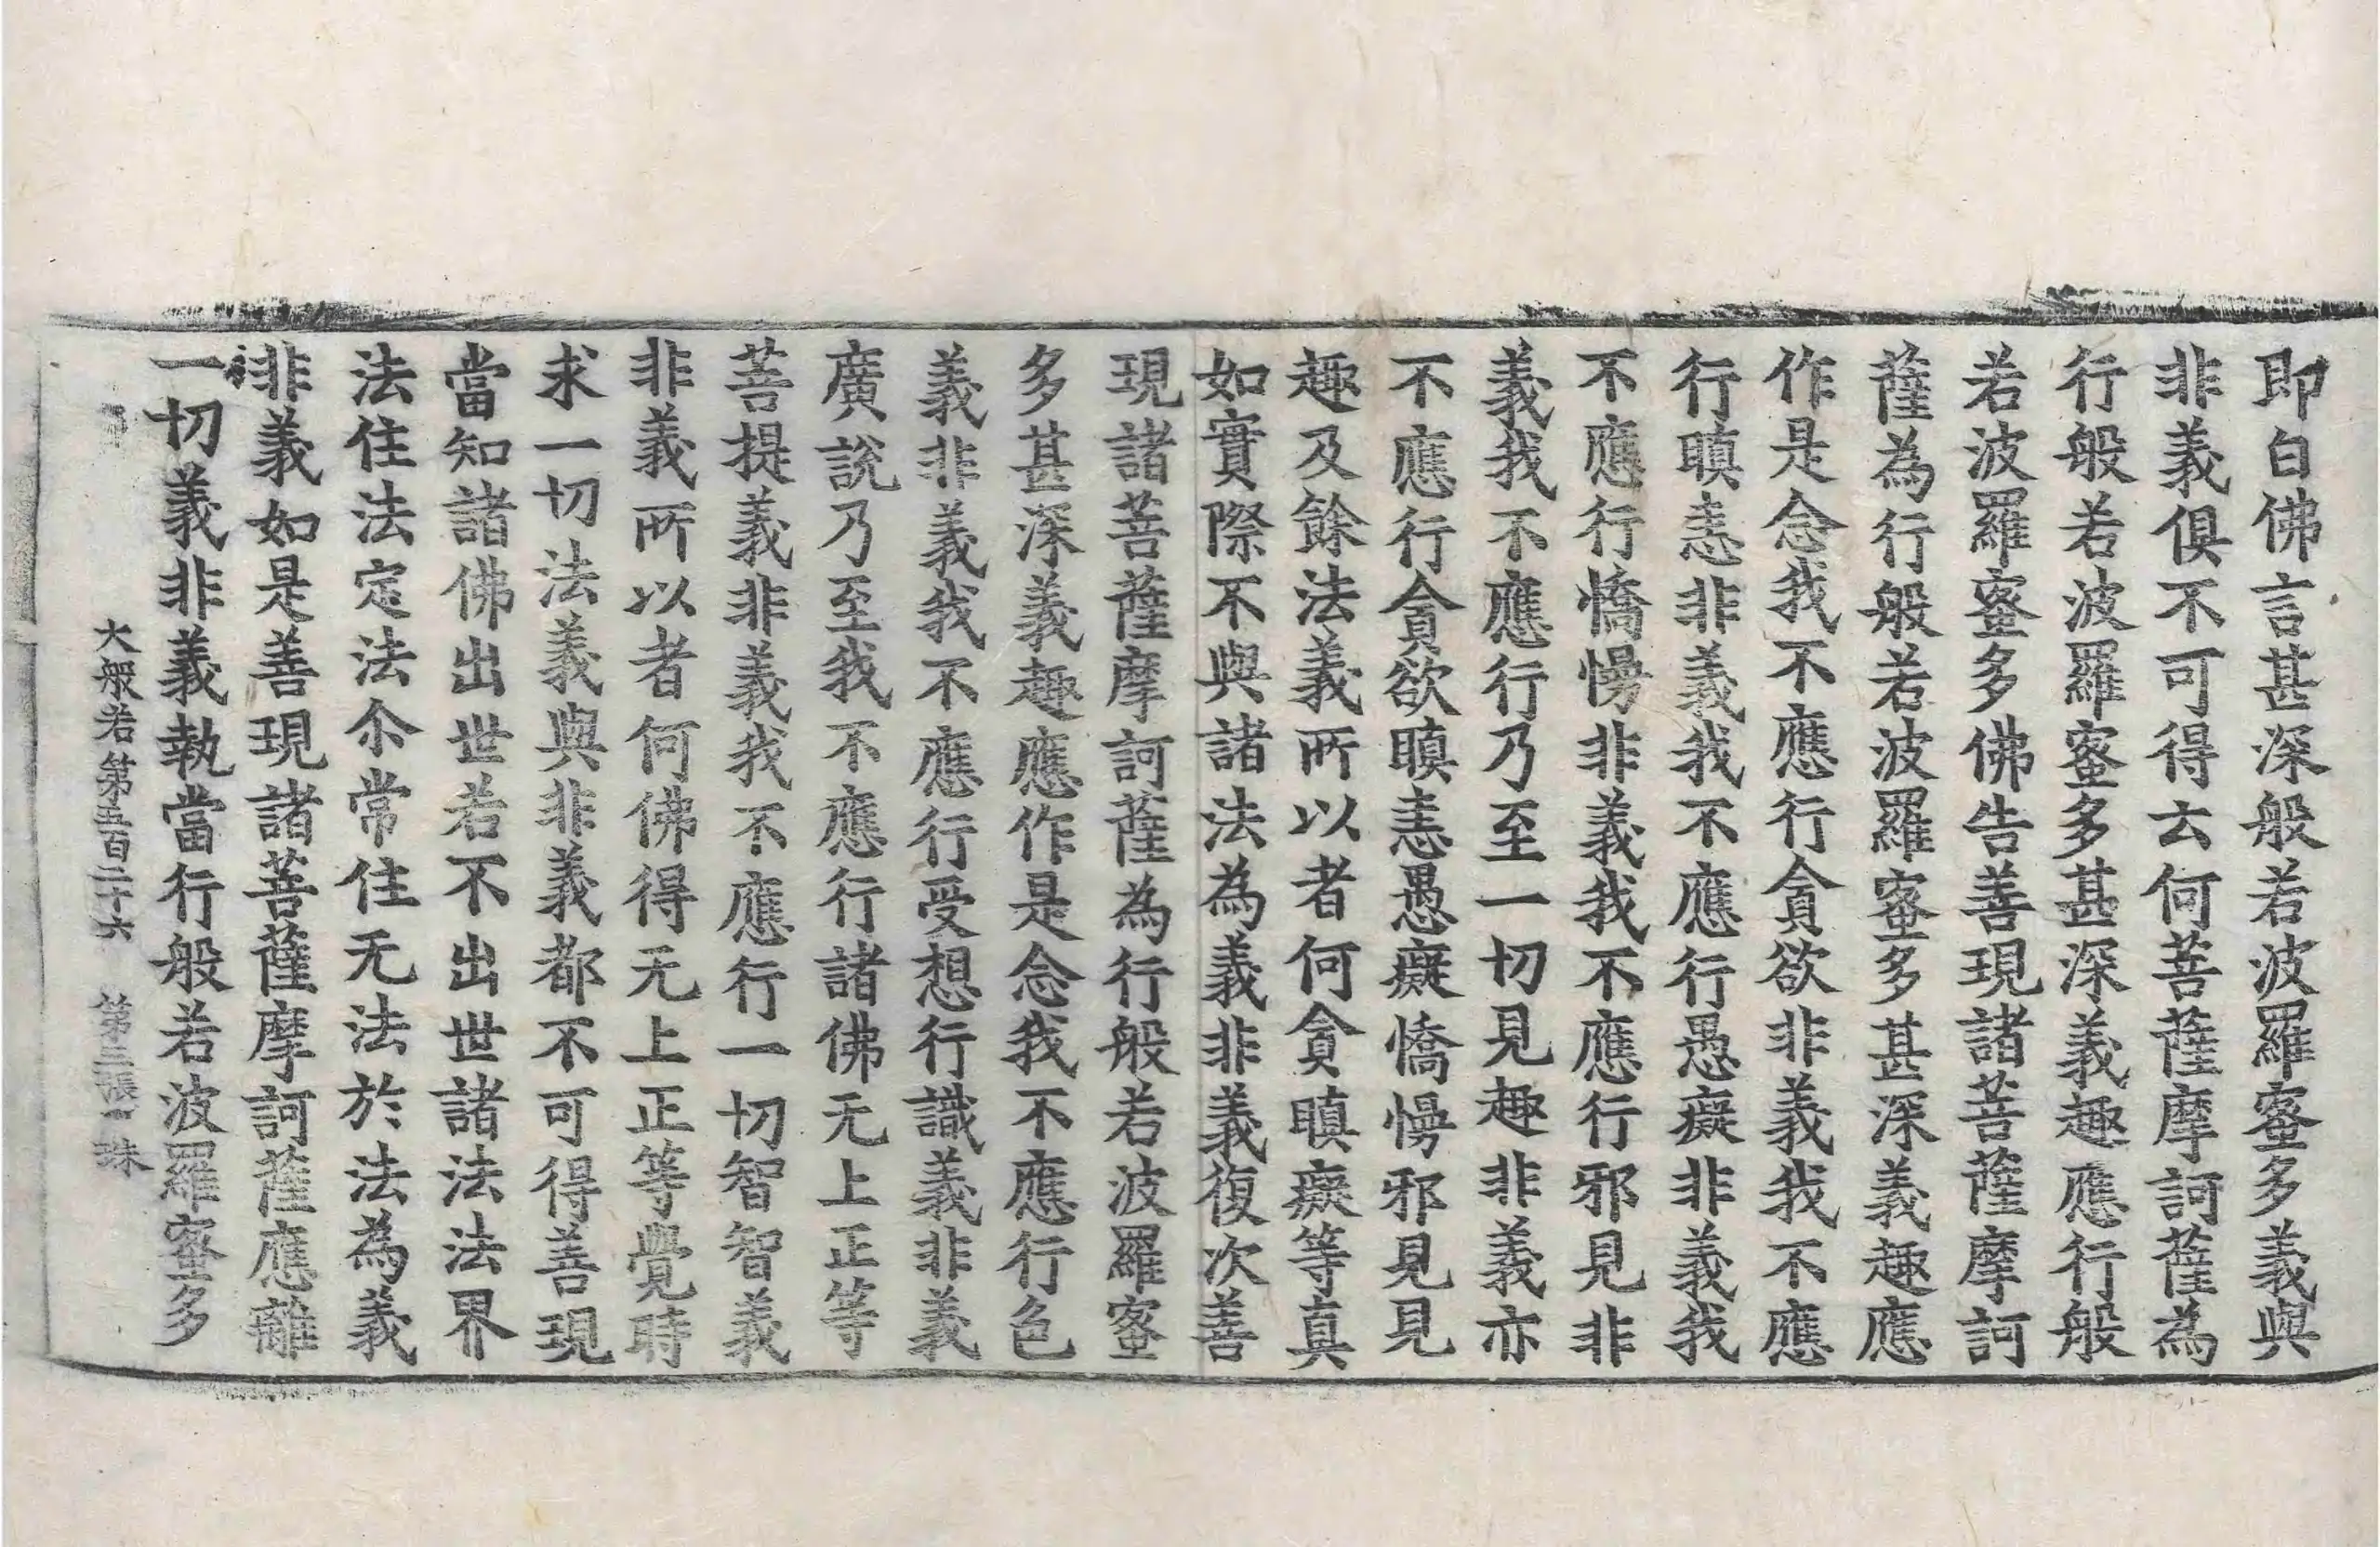 即白佛言甚深般若波羅蜜多義與
非義俱不可得云何菩薩摩訶薩為
行般若波羅蜜多甚深義趣應行般
若波羅蜜多佛告善現諸菩薩摩訶
薩為行般若波羅蜜多甚深義趣應
作是念我不應行貪欲非義我不應
行瞋恚非義我不應行愚癡非義我
不應行憍慢非義我不應行邪見非
義我不應行乃至一切見趣非義亦
不應行貪欲瞋恚愚癡憍慢邪見見
趣及餘法義所以者何貪瞋癡等真
如實際不與諸法為義非義復次善
現諸菩薩摩訶薩為行般若波羅蜜
多甚深義趣應作是念我不應行色
義非義我不應行受想行識義非義
廣說乃至我不應行諸佛无上正等
菩提義非義我不應行一切智智義
非義所以者何佛得无上正等覺時
求一切法義與非義都不可得善現
當知諸佛出世若不出世諸法法界
法住法定法尒常住无法於法為義
非義如是善現諸菩薩摩訶薩應離
一切義非義執當行般若波羅蜜多
大般若第五百二十六 第三張 珠